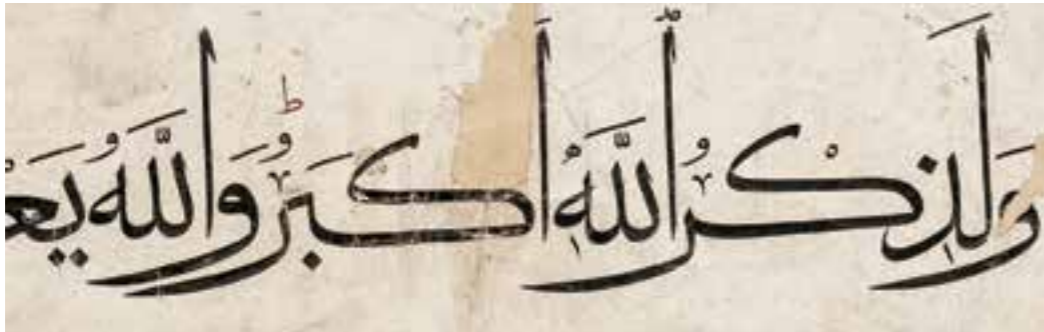 وَلَذِكْرُ اللَّهِ أَكْبَرُ ۗ وَاللَّهُ يَعْ